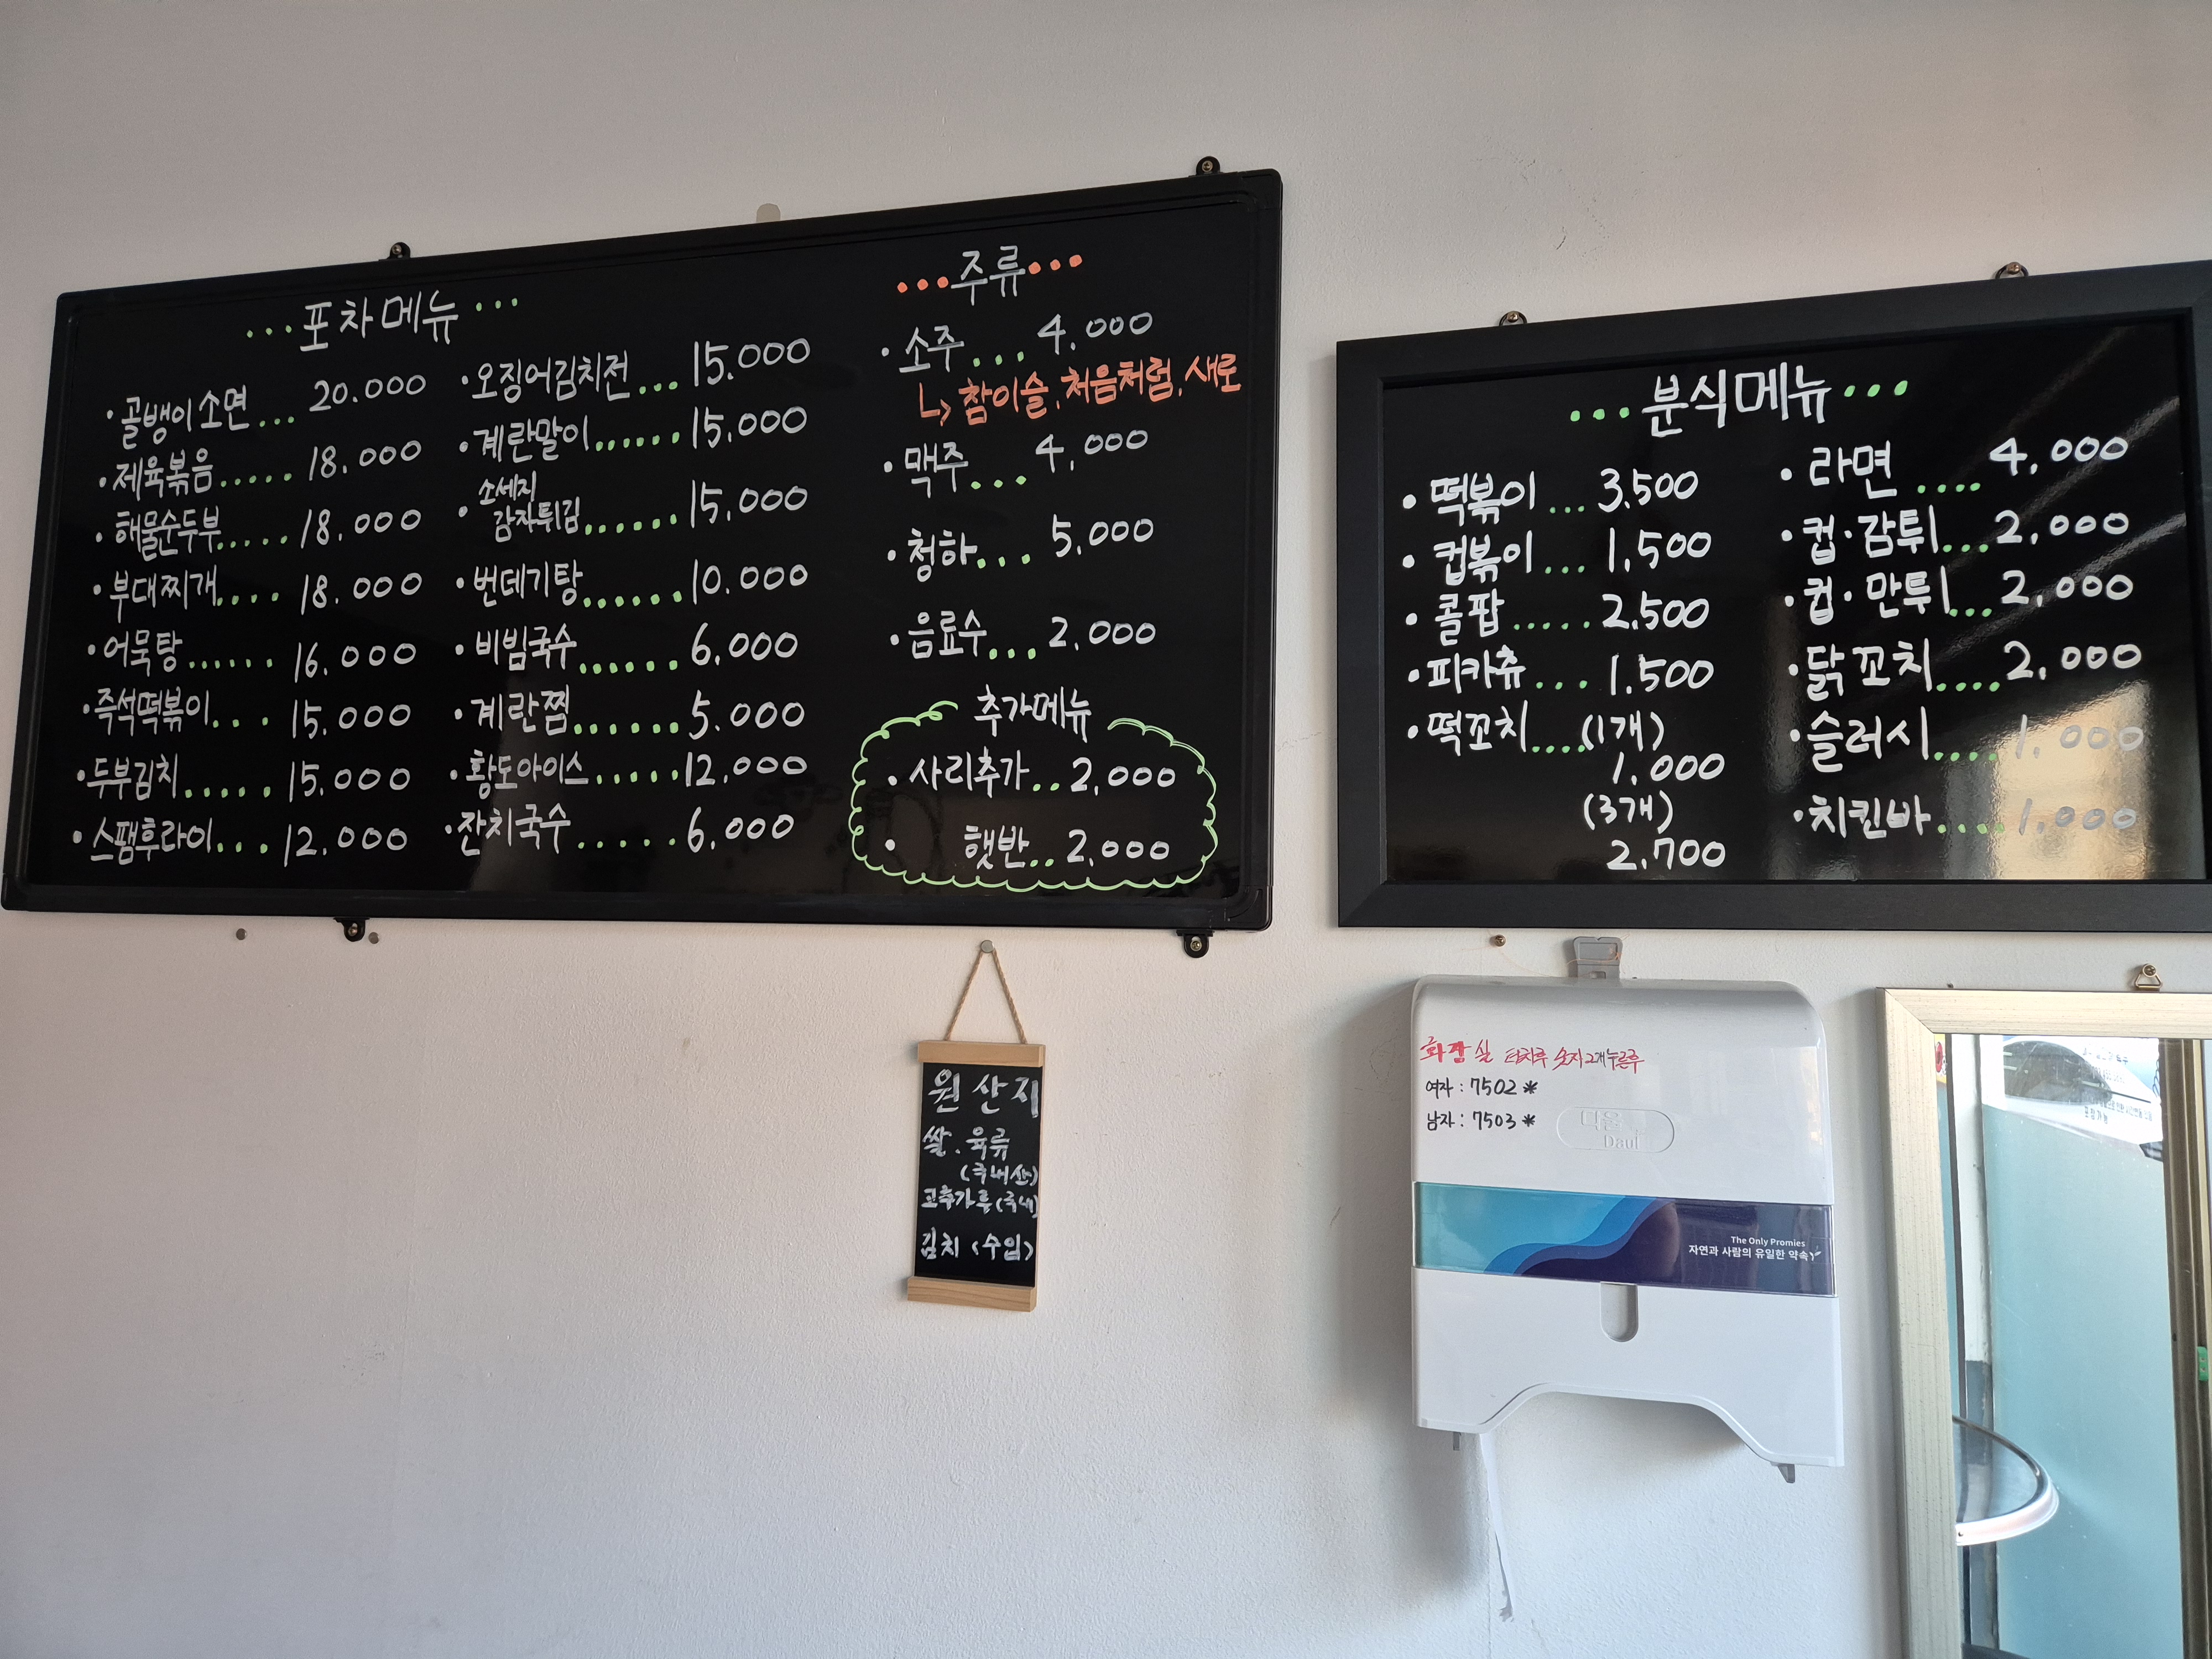 ...포차메뉴...
·골뱅이소면... 20.000
·제육볶음..... 18.000
·해물순두부..... 18.000
·부대찌개.... 18.000
·어묵탕...... 16.000
·즉석떡볶이... 15.000
·두부김치..... 15.000
·스팸후라이... 12.000
·오징어김치전... 15.000
·계란말이...... 15.000
·소세지
감자튀김...... 15.000
·번데기탕...... 10.000
·비빔국수...... 6.000
·계란찜...... 5.000
·황도아이스..... 12.000
·잔치국수..... 6.000
...주류...
·소주... 4.000
↳ 참이슬, 처음처럼, 새로
·맥주... 4.000
·청하... 5.000
·음료수... 2.000
추가메뉴
·사리추가.. 2.000
·햇반.. 2.000
...분식메뉴...
·떡볶이... 3.500
·컵볶이... 1.500
·콜팝..... 2.500
·피카츄... 1.500
·떡꼬치....(1개)
1.000
(3개)
2.700
·라면.... 4.000
·컵·감튀... 2.000
·컵·만튀... 2.000
·닭꼬치.... 2.000
·슬러시.... 1.000
·치킨바.... 1.000
원산지
쌀.육류
(국내산)
고추가루(국내)
김치(수입)
화장실 터치후 숫자2개누른후
여자: 7502*
남자: 7503*
다울
Daul
The Only Promies
자연과 사람의 유일한 약속